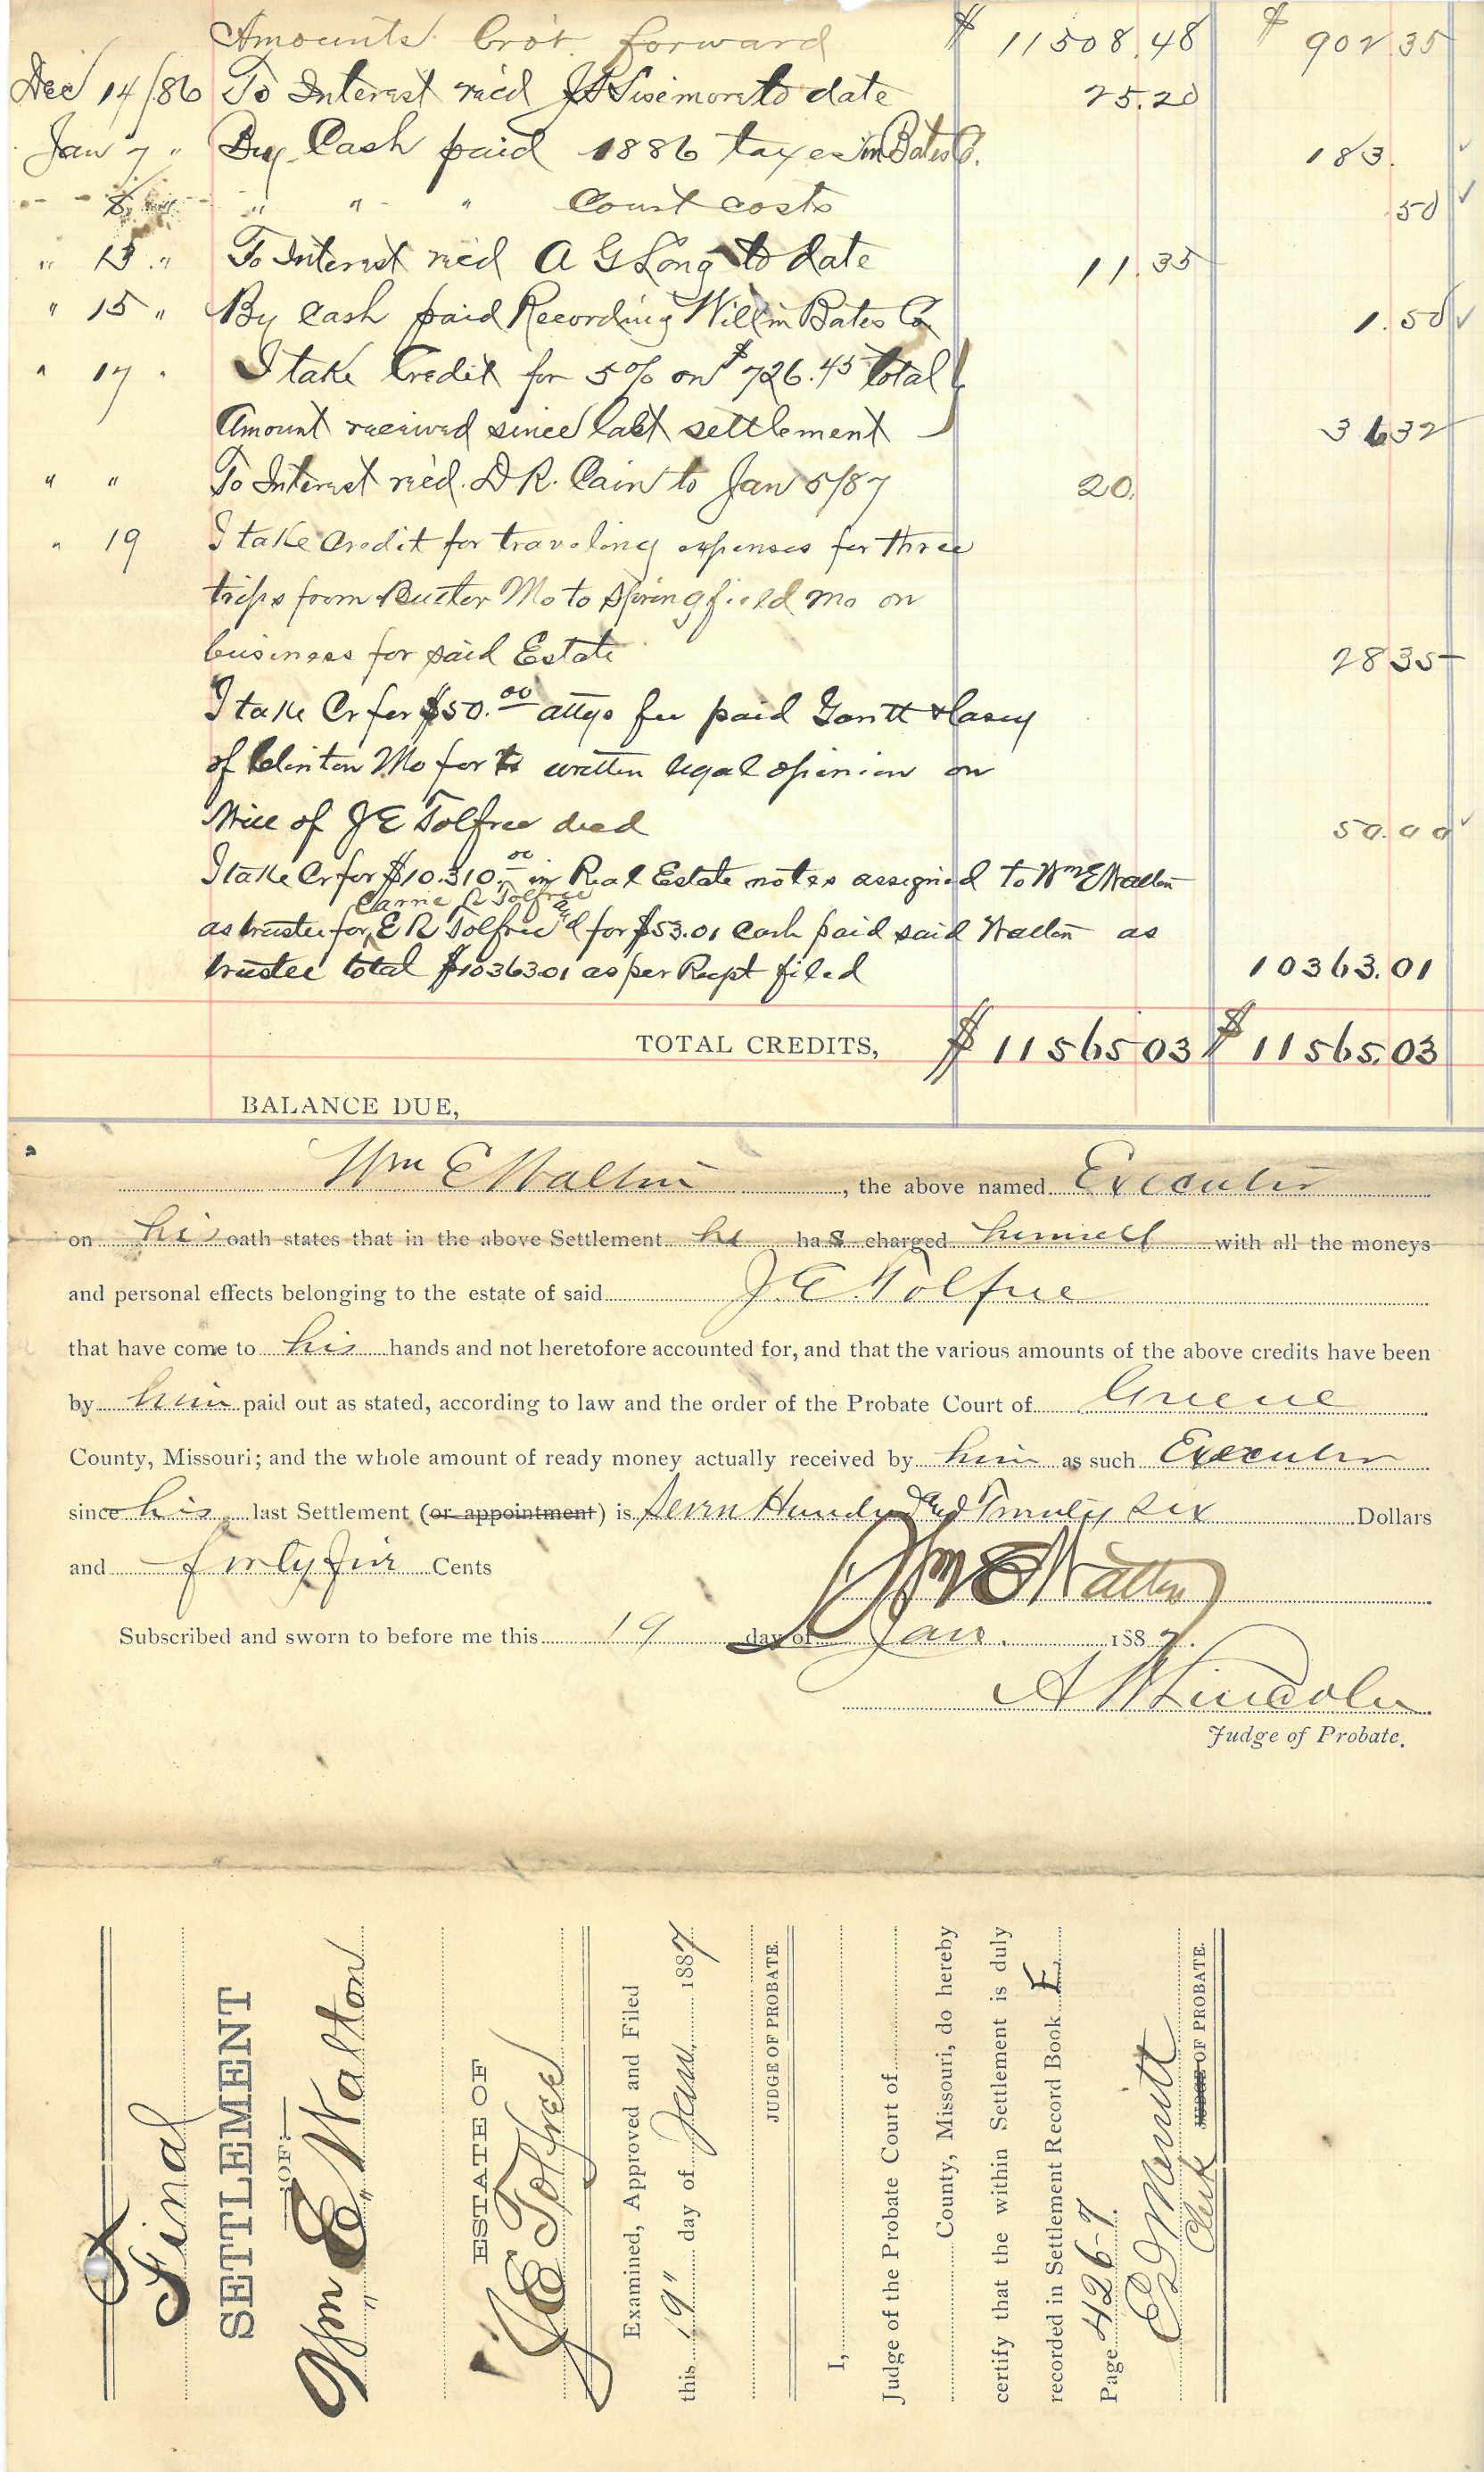 Amounts bro't forward $ 11508.48 $ 902 35
Dec 14/86 To Interest rec'd J S Sisemore to date 25.20
Jan 7 " By Cash paid 1886 taxes in Bates Co. 183.
" 8 " " " " Court costs .50
" 13 " To Interest rec'd A G Long to date 11.35
" 15 " By Cash paid Recording Will in Bates Co 1.50
" 17 " I take Credit for 5% on $726.45 total
Amount received since last settlement 36 32
" " To Interest rec'd. D.R. Cain to Jan 5/87 20.
" 19 I take Credit for traveling expenses for three
trips from Butler Mo to Springfield Mo on
business for said Estate 28 35
I take Cr for $50.00 attys fee paid Gantt & Casey
of Clinton Mo for written legal opinion on
Will of J E Tolfree decd 50.00
I take Cr for $10.310.00 in Real Estate notes assigned to Wm E Walton
Carrie R Tolfree
as trustee for E R Tolfree & for $53.01 Cash paid said Walton as
trustee total $10363.01 as per Recpt filed 10363.01
TOTAL CREDITS, $ 11565 03 $ 11565.03
BALANCE DUE,
Wm E Walton, the above named Executor
on his oath states that in the above Settlement he has charged himself with all the moneys
and personal effects belonging to the estate of said J. E. Tolfree
that have come to his hands and not heretofore accounted for, and that the various amounts of the above credits have been
by him paid out as stated, according to law and the order of the Probate Court of Greene
County, Missouri; and the whole amount of ready money actually received by him as such Executor
since his last Settlement (or appointment) is Seven Hundred and Twenty Six Dollars
and forty five Cents
Wm E Walton
Subscribed and sworn to before me this 19 day of Jan. 1887.
A W Lincoln
Judge of Probate.
Final
SETTLEMENT
OF
Wm E Walton
ESTATE OF
J E Tolfree
Examined, Approved and Filed
this 19" day of Jan. 1887
JUDGE OF PROBATE.
I,
Judge of the Probate Court of
County, Missouri, do hereby
certify that the within Settlement is duly
recorded in Settlement Record Book F,
Page 426-7.
E D Merritt
Clerk JUDGE OF PROBATE.